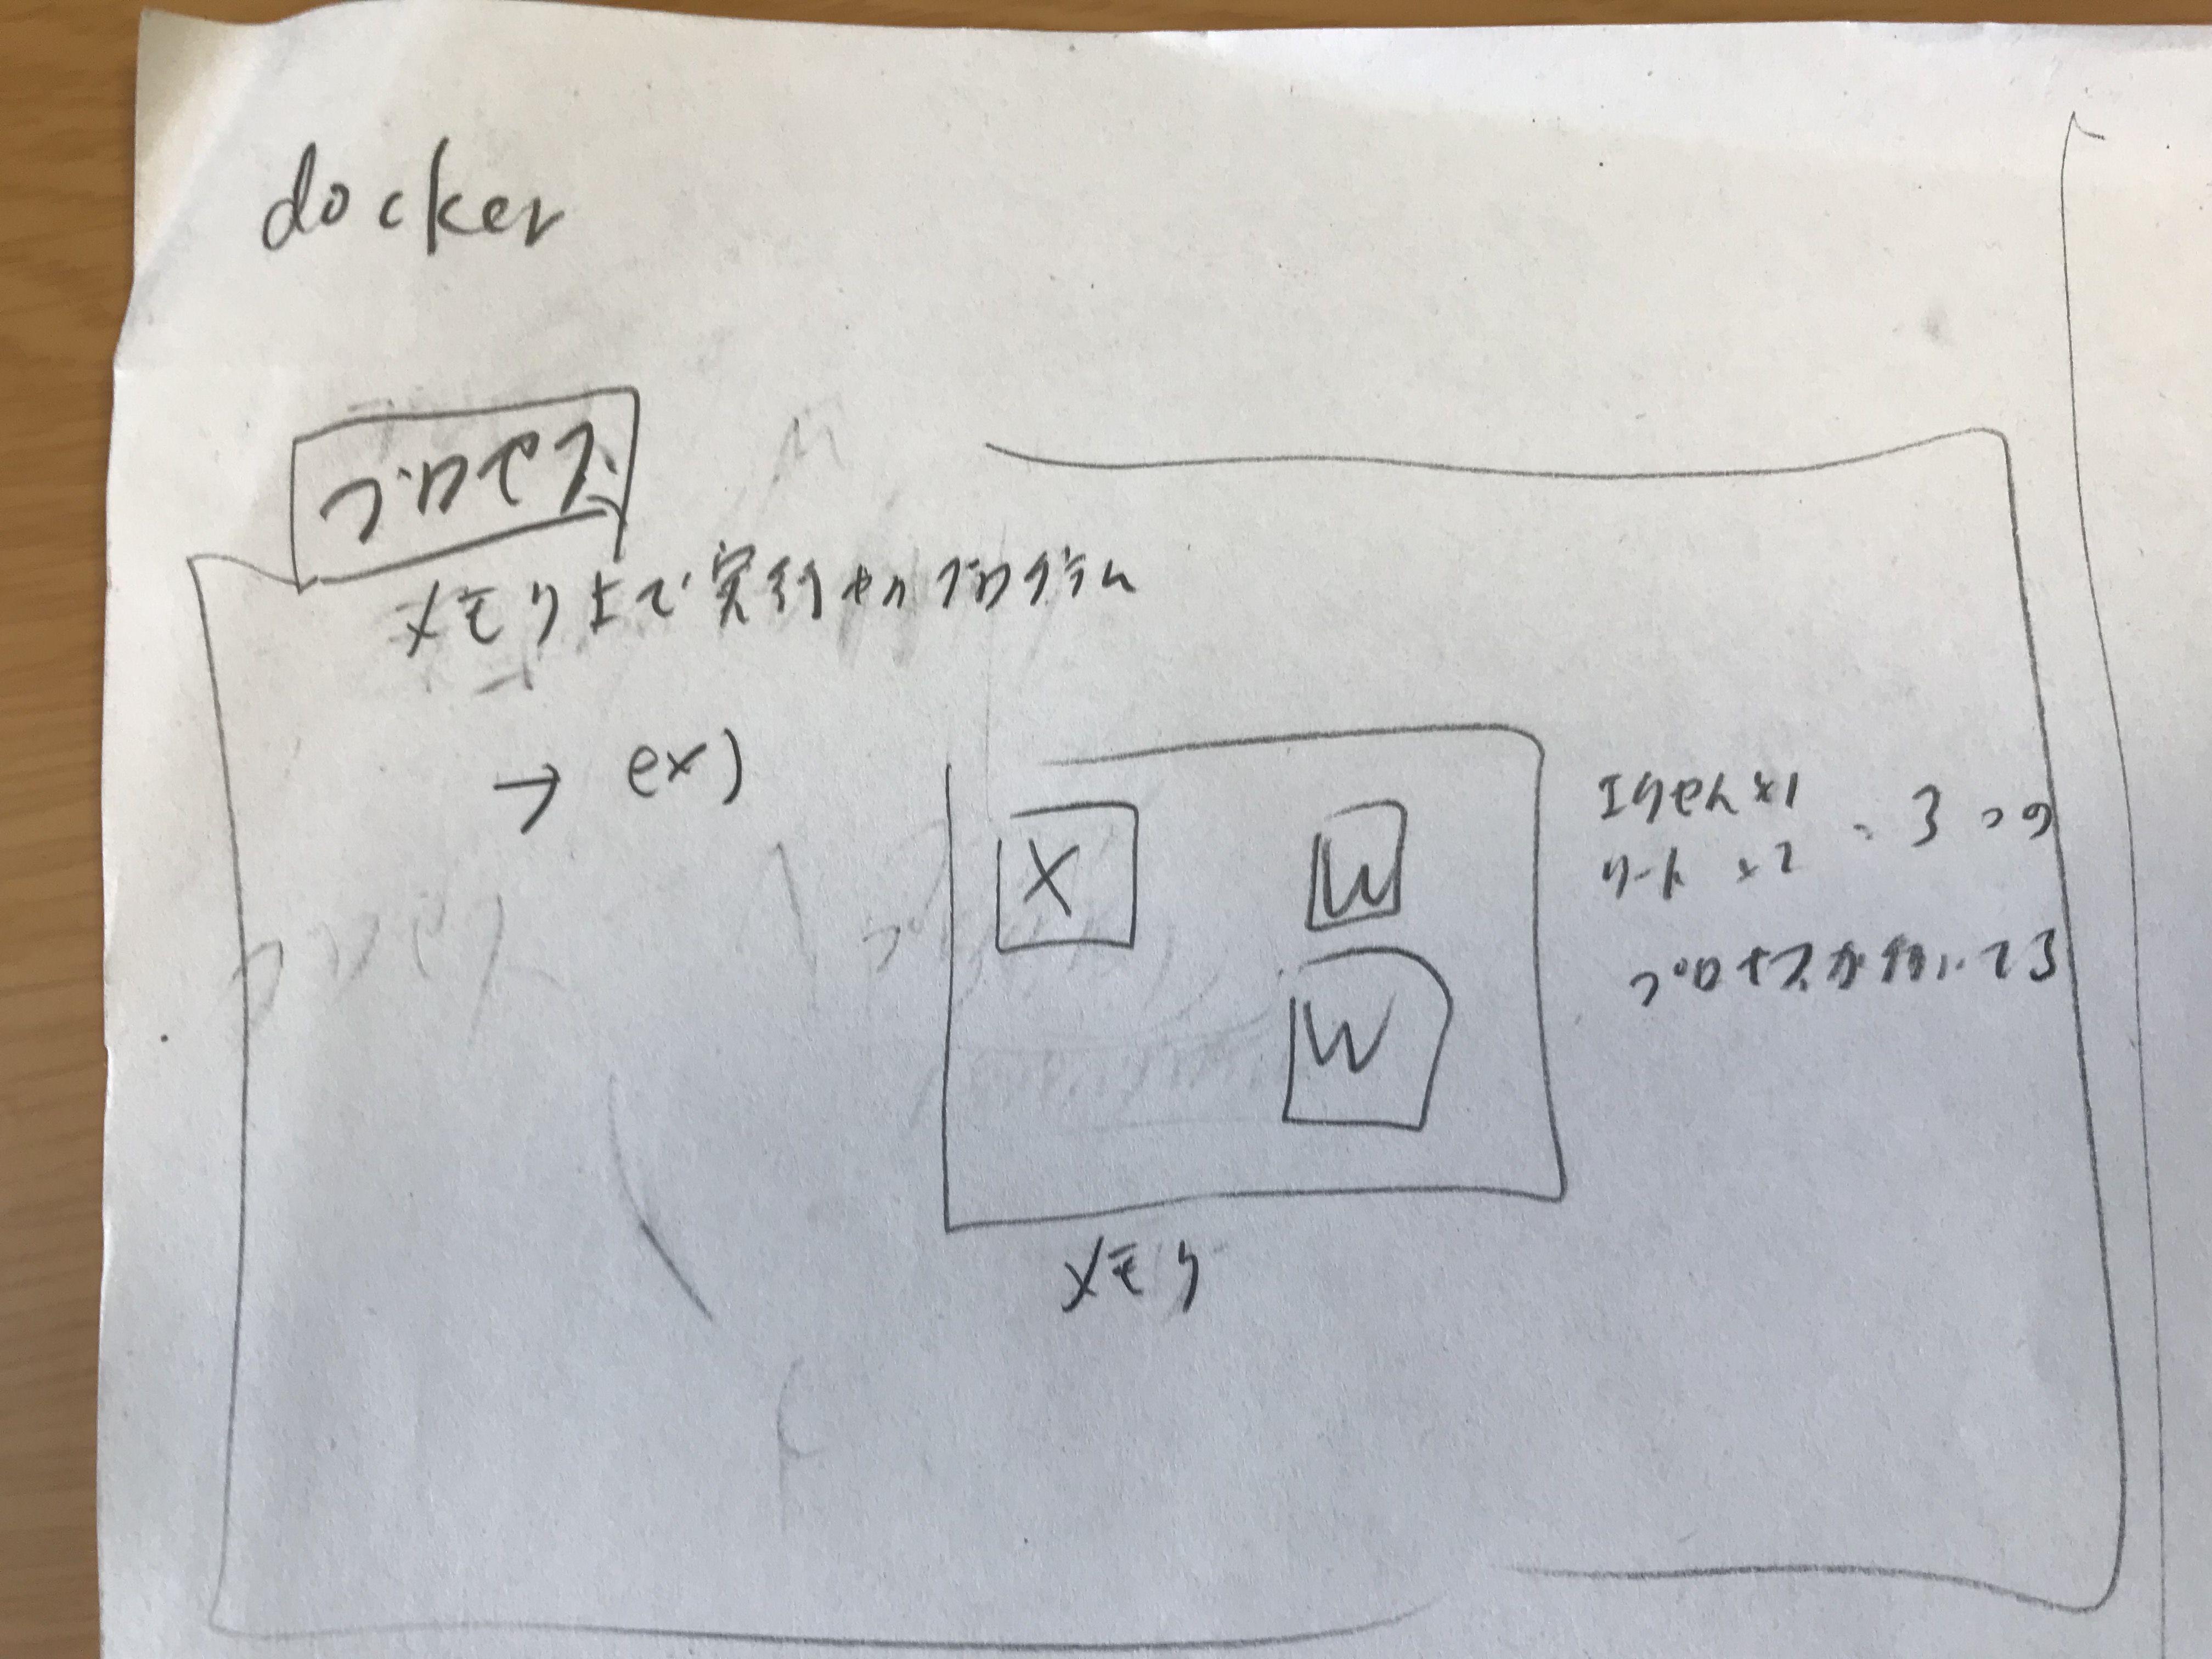 docker
プロセス
メモリ上で実行中のプログラム
→ ex)
X
W
W
エクセル×1
ワード ×2
、3つの
プロセスが動いてる
メモリ